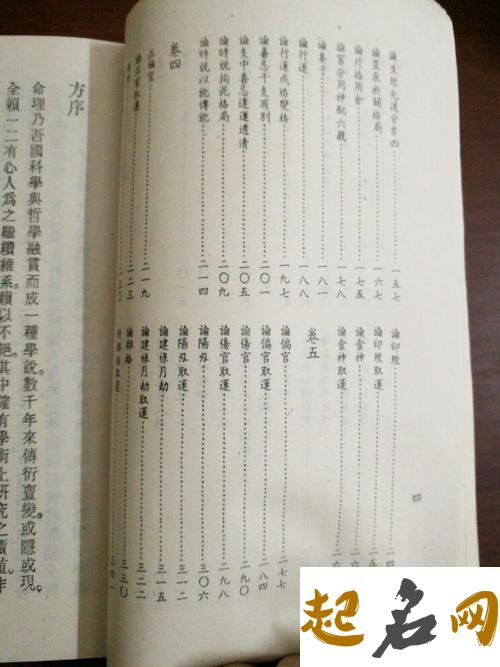 論生尅先後分吉凶……一五七
論星辰無關格局……一六七
論外格用舍……一七五
論宮分用神配六親……一七八
論妻子……一八一
論行運……一八八
論行運成格變格……一九七
論喜忌干支有別……二〇一
論支中喜忌逢運透清……二〇五
論時說拘泥格局……二〇九
論時說以訛傳訛……二一四
卷四
正論官……二一九
論正官取運……二二三
二三〇
論印綬……二四
論印綬取運……二五
論食神……二六
論食神取運……二六
卷五
論偏官……二七七
論偏官取運……二八四
論傷官……二九〇
論傷官取運……二九八
論陽刃……三〇六
論陽刃取運……三一五
論建祿月劫……三二二
論建祿月劫取運……三三〇
論雜格……三四一
四
方序
命理乃吾國科學與哲學融貫而成一種學說。數千年來傳衍亶變。或隱或現。
全賴一二有心人爲之繼續維系。賴以不絕。其中確有學術上研究之價值。非
起名网